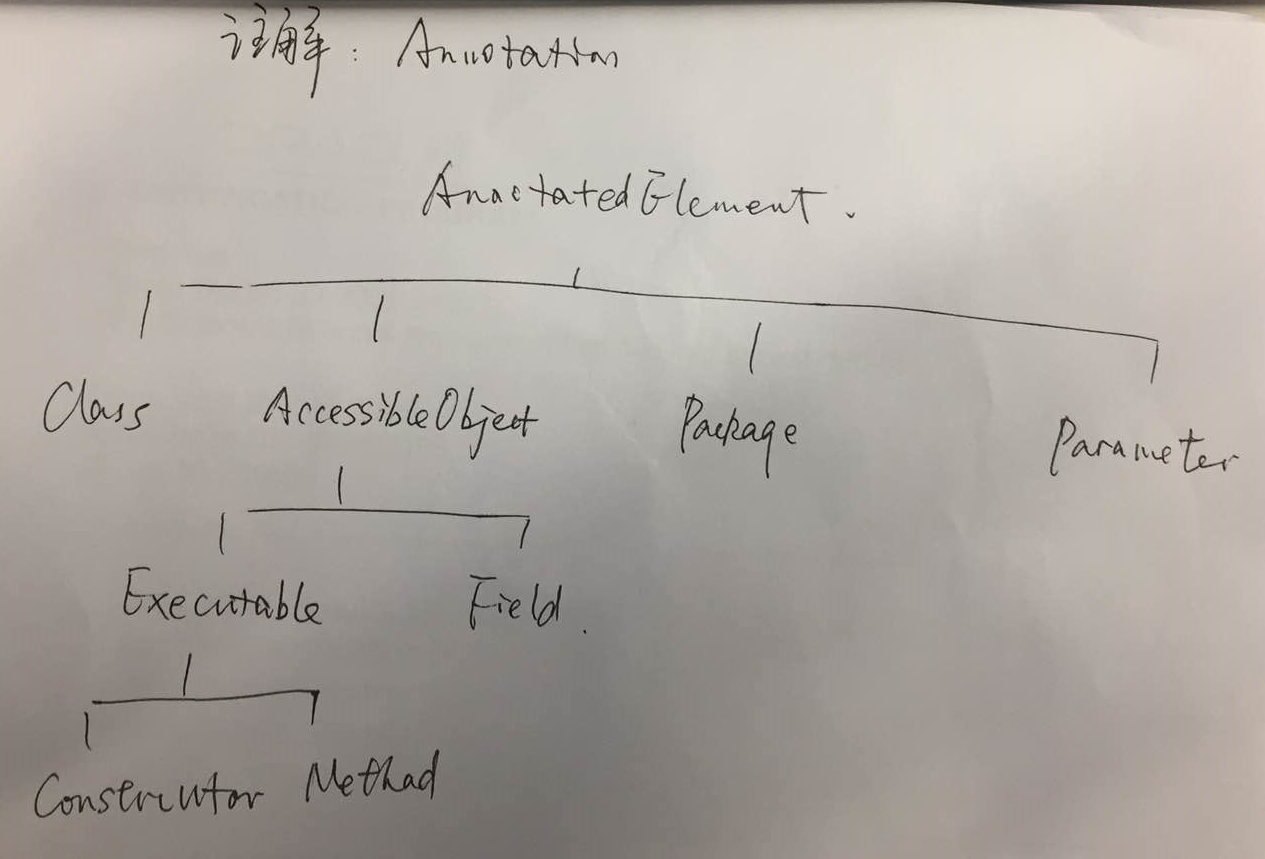 注解: Annotation
AnnotatedElement.
Class AccessibleObject Package Parameter
Executable Field.
Constructor Method